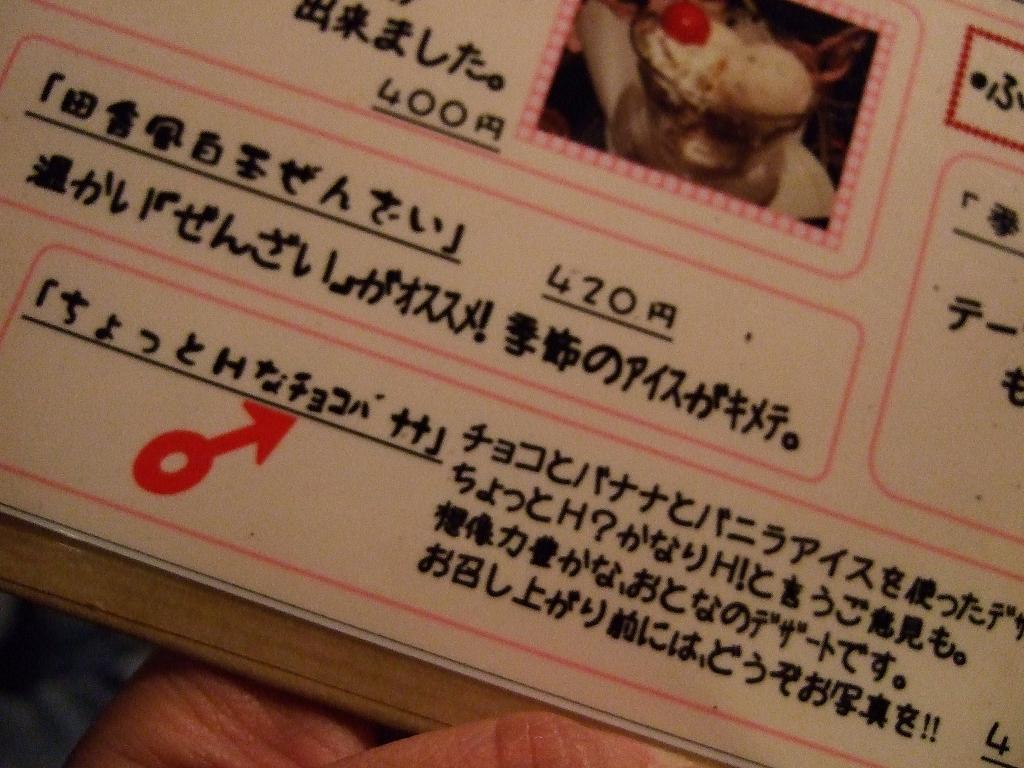 出来ました。
400円
「田舎風白玉ぜんざい」
420円
温かい『ぜんざい』がオススメ! 季節のアイスがキメテ。
「ちょっとHなチョコバナナ」
チョコとバナナとバニラアイスを使ったデザ
ちょっとH?かなりH!と言うご意見も。
想像力豊かな、おとなのデザートです。
お召し上がり前には、どうぞお写真を!!
4
•ふ
「季
テー
も